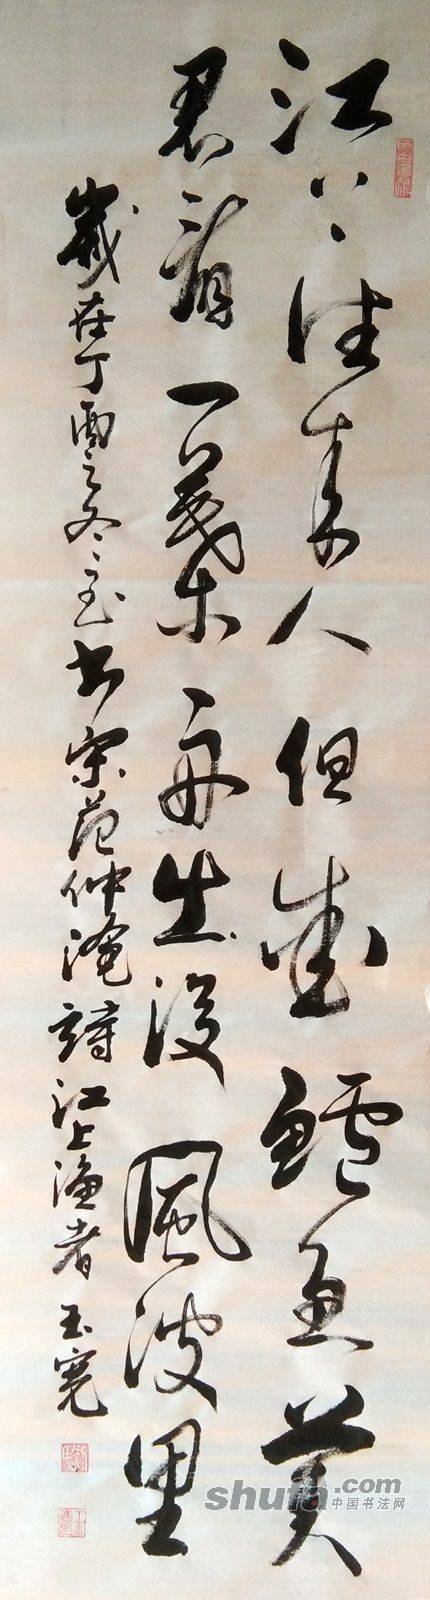 江上往来人但爱鲈鱼美
君看一叶舟出没风波里
岁在丁酉之冬冬至书宋范仲淹诗江上渔者玉宽
shufa.com
中国书法网